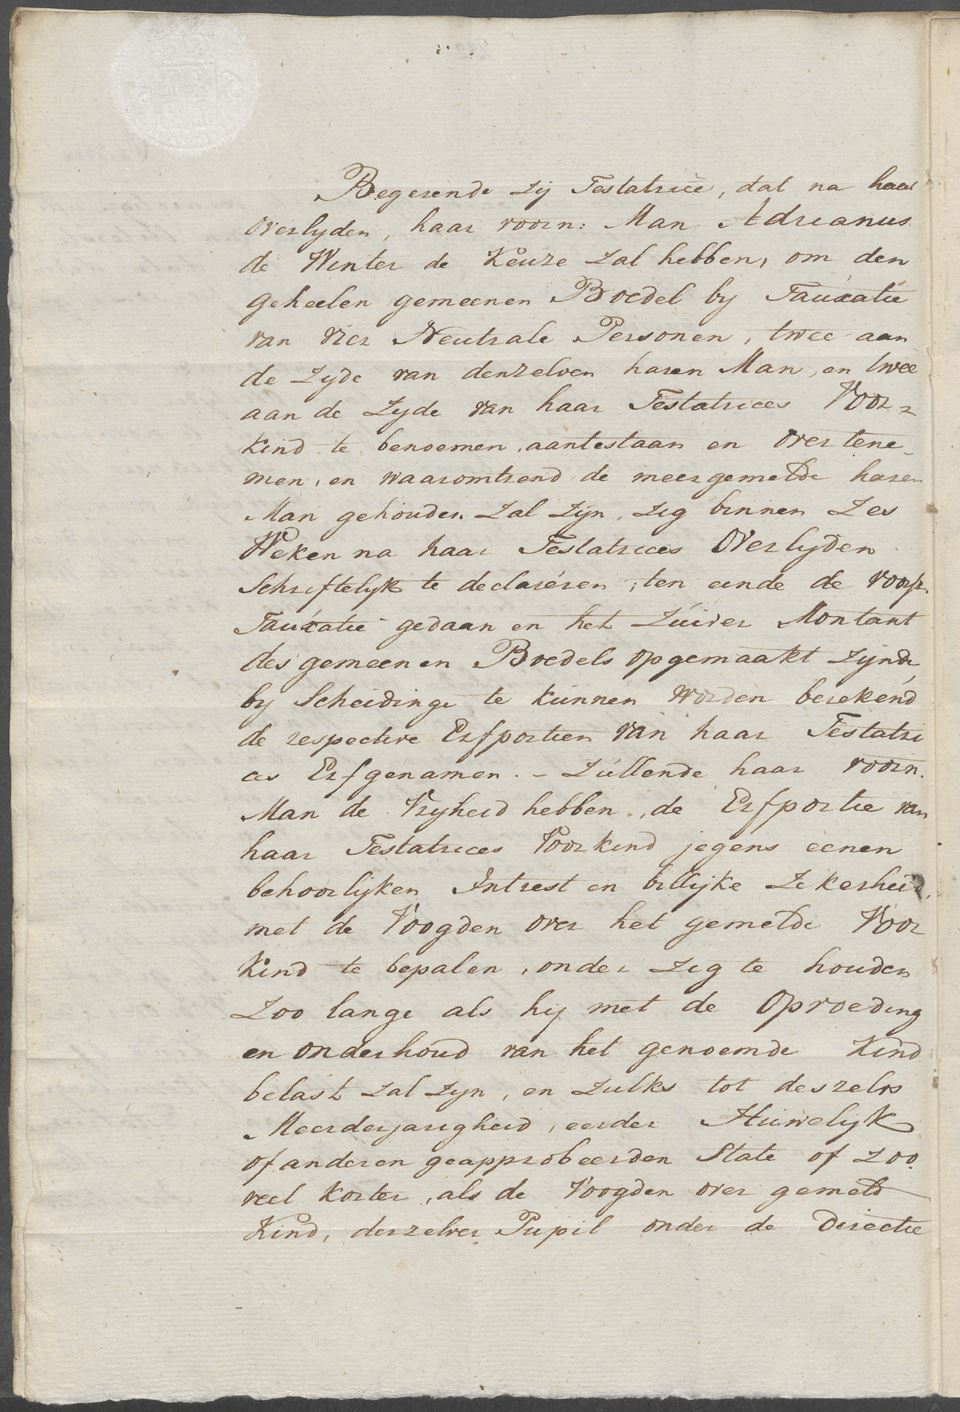 Begerende zij Testatrice, dat na haar
overlyden, haar voorn: Man Adrianus
de Winter de Keuze zal hebben, om den
geheelen gemeenen Boedel by Tauxatie
van vier Neutrale Personen, twee aan
de zyde van denzelven haren Man, en twee
aan de zyde van haar Testatrices Voor=
kind te benoemen, aantestaan en overtene-
men, en waaromtrend de meergemelde haren
Man gehouden zal zyn, zig binnen zes
Weken na haar Testatrices Overlyden
Schriftelyk te declaréren, ten einde de voorsz.
Tauxatie gedaan en het Zuiver Montant
des gemeenen Boedels opgemaakt zynde,
by Scheidinge te kunnen worden berekend
de respective Erfportien van haar Testatri
ces Erfgenamen. - Zullende haar voorn.
Man de Vryheid hebben, de Erfportie van
haar Testatrices Voorkind jegens eenen
behoorlijken Intrest en billijke Zekerheid,
met de Voogden over het gemelde Voor
Kind te bepalen, onder zig te houden
Zoo lange als hij met de Opvoeding
en onderhoud van het genoemde Kind
belast zal zyn, en zulks tot deszelvs
Meerderjarigheid, eerder Huwelijk
of anderen geapprobeerden State of zoo
veel korter, als de Voogden over gemeld
Kind, derzelver Pupil onder de Directie